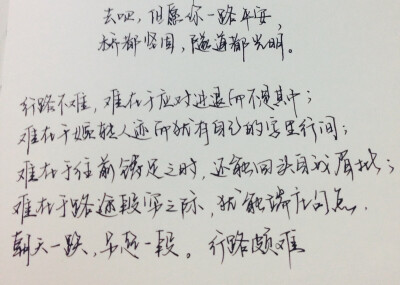 去吧，但愿你一路平安，
桥都坚固，隧道都光明。
行路不难，难在于应对进退而不失其中；
难在于婉转人迹而犹有自己的字里行间；
难在于往前铸足之时，还能回头自我眉批；
难在于路途段落之际，犹能端庄句点.
朝天一跌，另起一段。行路颇难